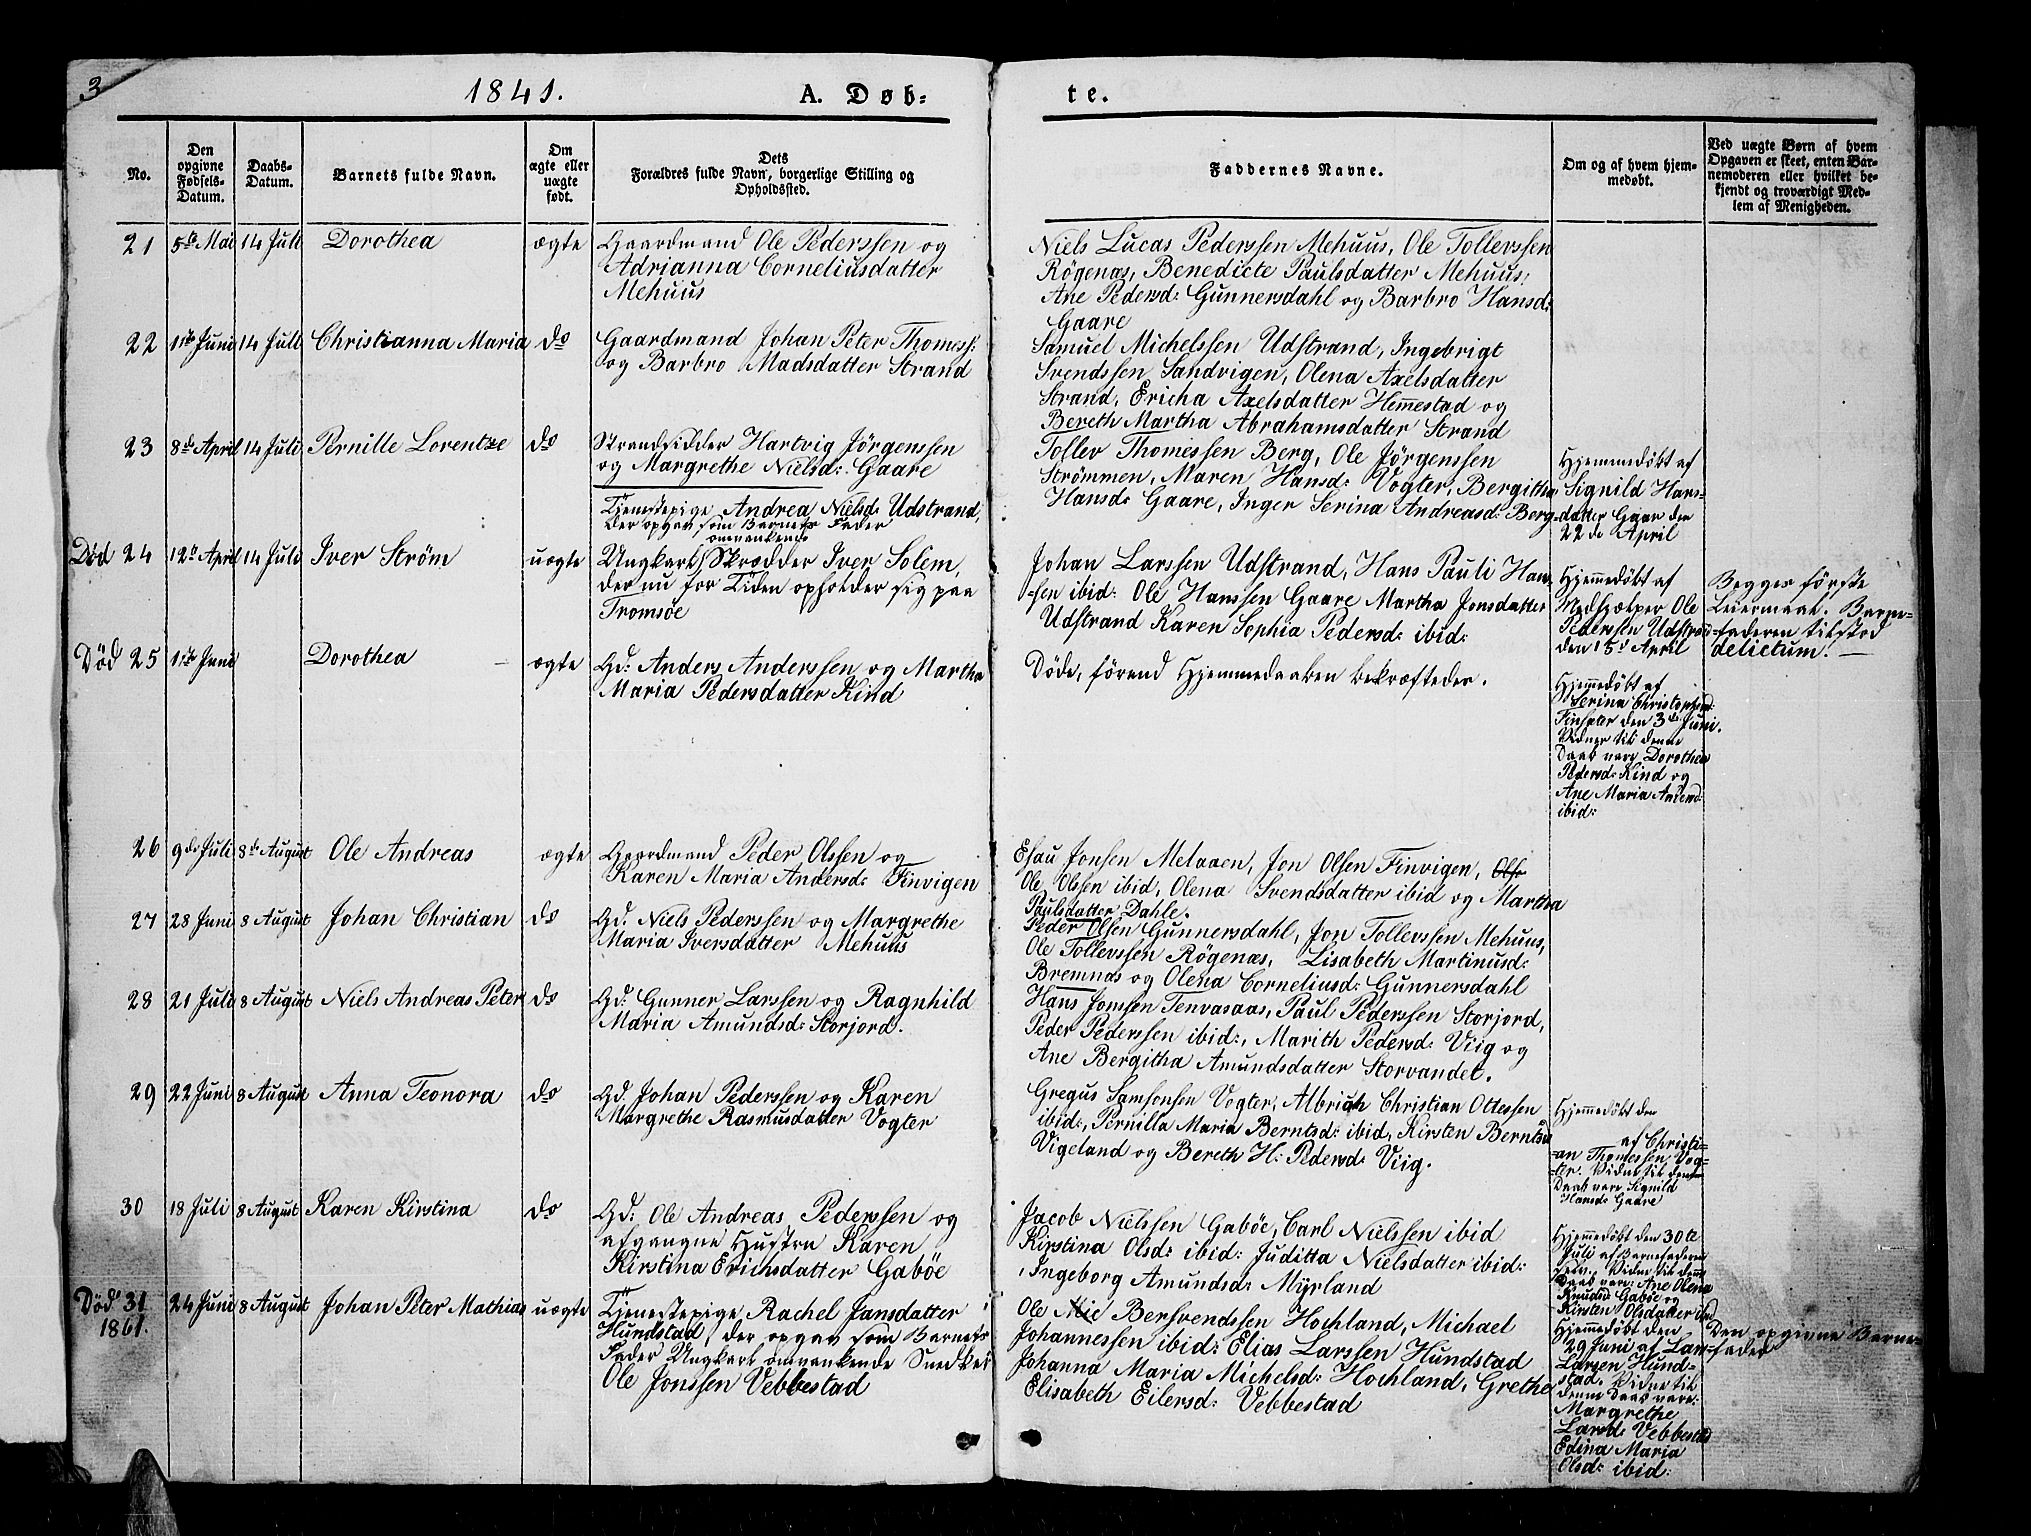 3
1841.
A. Døb-
te.
No.
Den opgivne Fødsels-Datum.
Daabs-Datum.
Barnets fulde Navn.
Om ægte eller uægte født.
Dets
Forældres fulde Navn, borgerlige Stilling og
Opholdssted.
Faddernes Navne.
Om og af hvem hjem-
medøbt.
Ved uægte Børn af hvem
Opgaven er skeet, enten Bar-
nemoderen eller hvilket be-
kjendt og troværdigt Med-
lem af Menigheden.
21 5te Mai 14 Juli Dorothea ægte Gaardmand Ole Pederssen og
Adrianna Corneliusdatter
Mehuus
Niels Lucas Pederssen Mehuus, Ole Tollevssen
Røgenæs, Benedicte Paulsdatter Mehuus,
Ane Pedersd: Gunnersdahl og Barbro Hansd:
Gaare
22 1ste Juni 14 Juli Christianna Maria do Gaardmand Johan Peter Thomess:
og Barbro Madsdatter Strand
Samuel Michelssen Udstrand, Ingebrigt
Svendssen Sandvigen, Olena Axelsdatter
Strand, Ericha Axelsdatter Hemestad og
Bereth Martha Abrahamsdatter Strand
23 8de April 14 Juli Pernille Lorentze do Strandsidder Hartvig Jørgenssen
og Margrethe Nielsd: Gaare
Tollev Thomessen Berg, Ole Jørgenssen
Strömmen, Maren Hansd: Vogter, Bergitha
Hansd: Gaare, Inger Serina Andreasd: Borg
Hjemmedøbt af
Signild Hans-
datter Gaar den
22de April
Død 24 12te April 14 Juli Iver Strøm uægte
Tjenestepige Andrea Nielsd: Udstrand,
der opgav som Barnets Fader
omvankende
Ungkarl Skrædder Iver Solem,
der nu for Tiden opholder sig paa
Tromsøe
Johan Larssen Udstrand, Hans Pauli Han-
sen ibid: Ole Hanssen Gaare Martha Jonsdatter
Udstrand Karen Sophia Pedersd: ibid:
Hjemmedøbt af
Medhjælper Ole
Pederssen Udstrand
den 15d April
Begges første
Leiermaal. Barne-
faderen tilstod
delictum.
Død 25 1ste Juni Dorothea ægte Gd: Anders Anderssen og Martha
Maria Pedersdatter Kind
Døde, førend Hjemmedaaben bekræftedes.
Hjemmedøbt af
Serina Christophersd:
Finsæter den 3de Juni.
Vidner til denne
Daab vare Dorothea
Pedersd: Kind og
Ane Maria Andersd:
ibid:
26 9de Juli 8de August Ole Andreas ægte Gaardmand Peder Olssen og
Karen Maria Andersd: Finvigen
Esau Jonsen Melaaen, Jon Olsen Finvigen, Ole
Ole Olssen ibid, Olena Svendsdatter ibid og Martha
Paulsdatter Dahle.
27 28 Juni 8 August Johan Christian do Gd. Niels Pederssen og Margrethe
Maria Iversdatter Mehuus
Peder Olsen Gunnersdahl, Jon Tollevssen Mehuus,
Ole Tollevssen Røgenæs, Lisabeth Martinusd:
Bremnæs og Olena Corneliusd: Gunnersdahl
28 21 Juli 8 August Niels Andreas Peter do Gd: Gunner Larssen og Ragnhild
Maria Amundsd: Storjord.
Hans Jonssen Tenvasaas, Paul Pederssen Storjord,
Peder Pederssen ibid:, Marith Pedersd: Viig og
Ane Bergitha Amundsdatter Storvandet.
29 22 Juni 8 August Anna Teonora do Gd. Johan Pederssen og Karen
Margrethe Rasmusdatter Vogter
Gregus Samsonsen Vogter, Albrich Christian Ottessen
ibid:, Pernilla Maria Berntsd: ibid, Kirsten Berntsd:
Vigeland og Bereth H: Pedersd: Viig.
Hjemmedøbt den
af Christi-
an Thomessen Vog-
ter. Vidne til denne
Daab vare Signild
Hansd: Gaare
30 18 Juli 8 August Karen Kirstina do Gd: Ole Andreas Pederssen og
afgangne Hustru Karen
Kirstina Erinsdatter Gabøe
Jacob Nielssen Gabøe, Carl Nielssen ibid
Kirstina Olsd: ibid: Juditta Nielsdatter ibid:
Ingeborg Amundsd: Myrland
Hjemmedøbt den 30te
Juli af Barnefaderen
selv. Vidne til denne
Daab vare: Ane Olena
Knudsd: Gabøe og
Kirsten Olsdatter ibd
Død 31 24 Juni 8 August Johan Peter Mathias uægte Tjenestepige Rachel Jansdatter
1861.
Hundstad, der opgav som Barnets
Fader Ungkarl omvankende Snedker
Ole Jonssen Vebbestad
Ole Mic Bersvendssen Hochland, Michael
Johannessen ibid: Elias Larssen Hundstad
Johanna Maria Michelsd: Hochland, Grethe
Elisabeth Eilersd: Vebbestad
Hjemmedøbt den
29 Juni af Lars
Larsen Hund-
stad. Vidne til
denne Daab vare:
Margrethe
Larsd: Vebbestad
Edina Maria
Olsd: ibid:
Den opgivne Barne-
fader